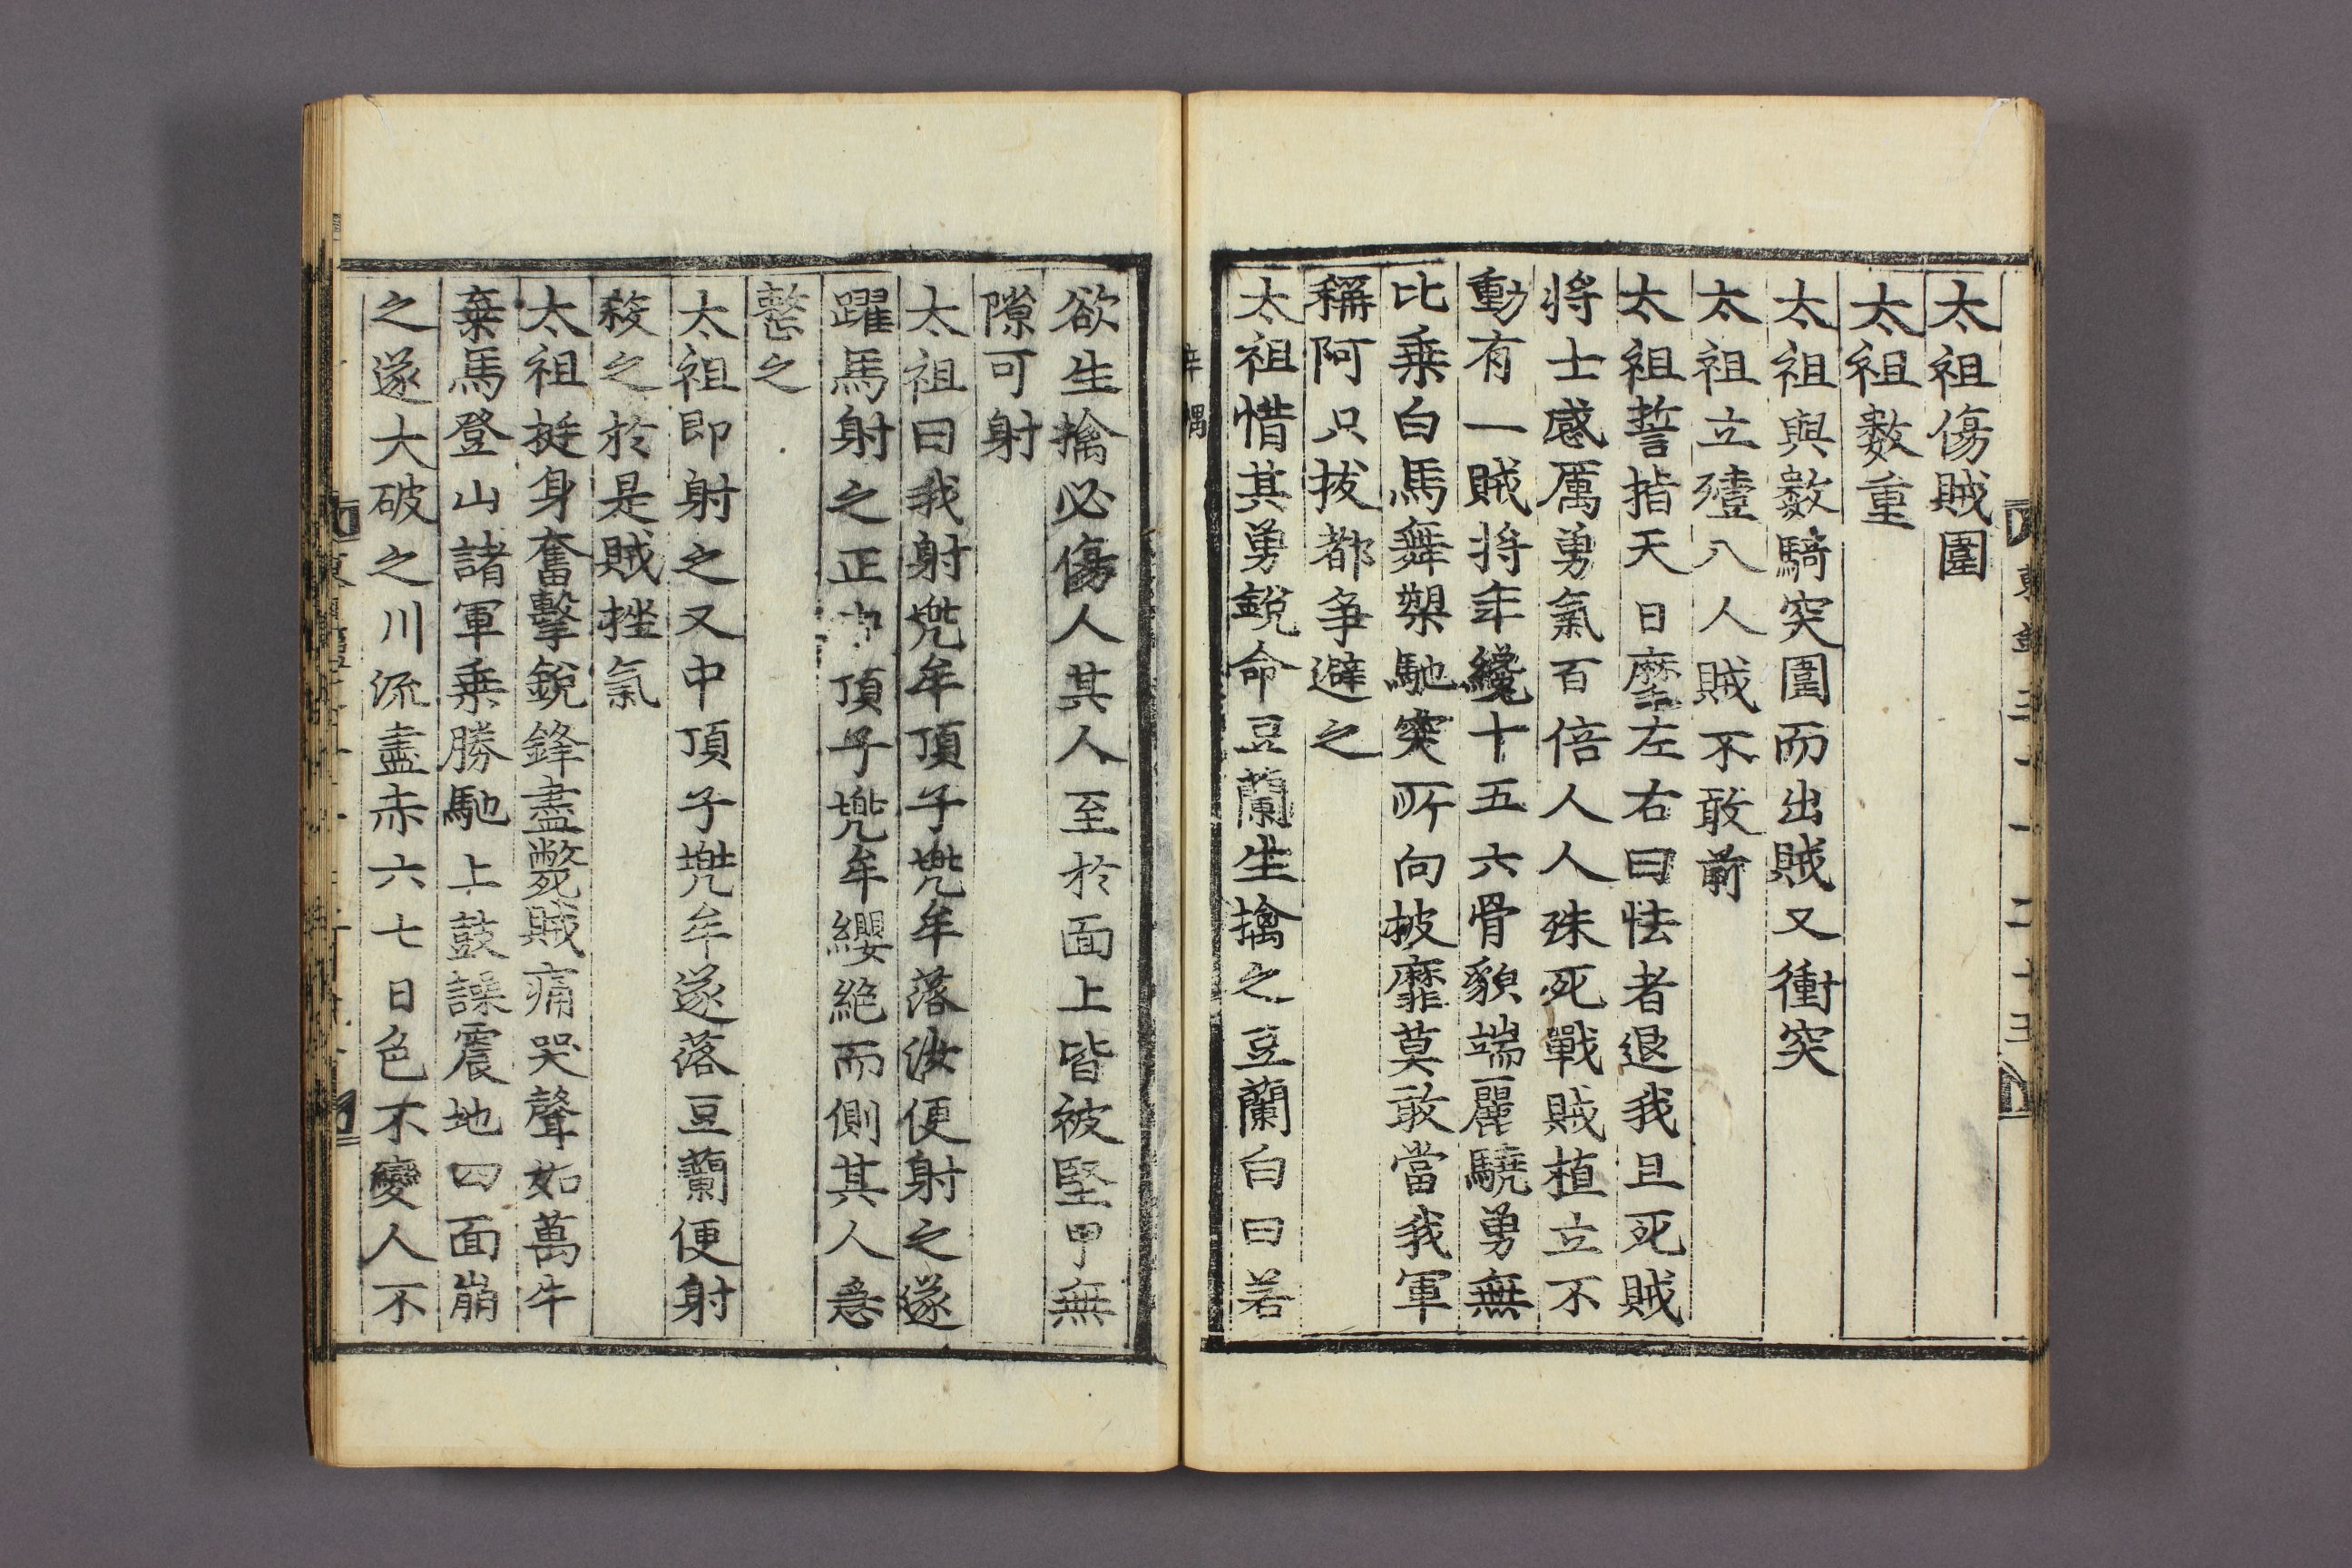 太祖傷賊圍
太祖數重
太祖與數騎突圍而出賊又衝突
太祖立殪八人賊不敢前
太祖誓指天日麾左右曰怯者退我且死賊
將士感厲勇氣百倍人人殊死戰賊植立不
動有一賊將年纔十五六骨貌端麗驍勇無
比乘白馬舞槊馳突所向披靡莫敢當我軍
稱阿只拔都爭避之
太祖惜其勇銳命豆蘭生擒之豆蘭白曰若
辛禑
欲生擒必傷人其人至於面上皆被堅甲無
隙可射
太祖曰我射兜牟頂子兜牟落汝便射之遂
躍馬射之正中頂子兜牟纓絶而側其人急
整之
太祖即射之又中頂子兜牟遂落豆蘭便射
殺之於是賊挫氣
太祖挺身奮擊銳鋒盡斃賊痛哭聲如萬牛
棄馬登山諸軍乘勝馳上鼓譟震地四面崩
之遂大破之川流盡赤六七日色不變人不